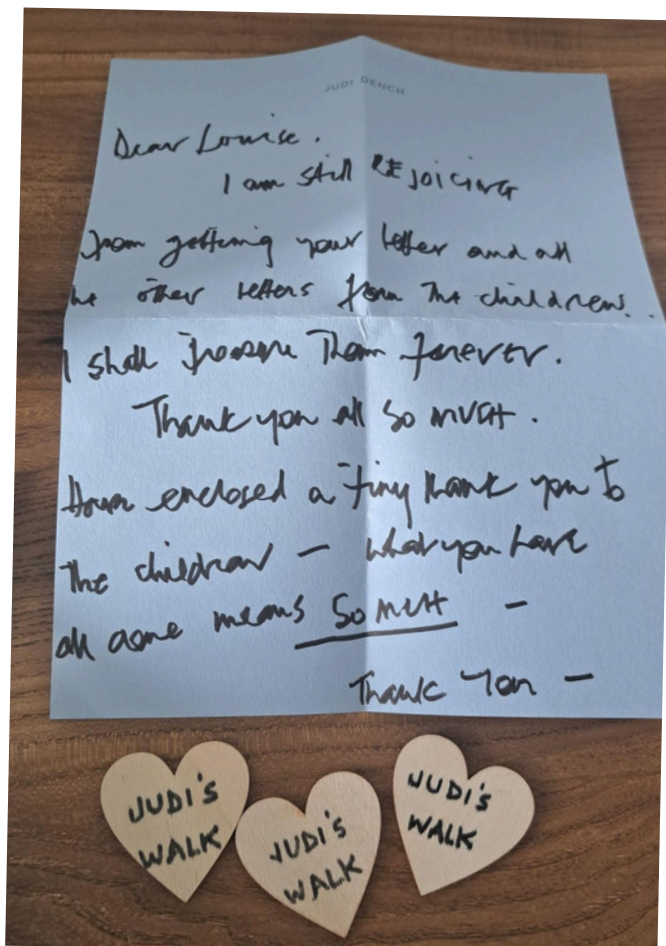 JUDI DENCH
Dear Louise.
I am still REJOICING
from getting your letter and all
the other letters from the children..
I shall treasure them forever.
Thank you all So MUCH.
Have enclosed a tiny thank you to
the children – what you have
all done means So MUCH –
Thank You –
JUDI'S
WALK
JUDI'S
WALK
JUDI'S
WALK